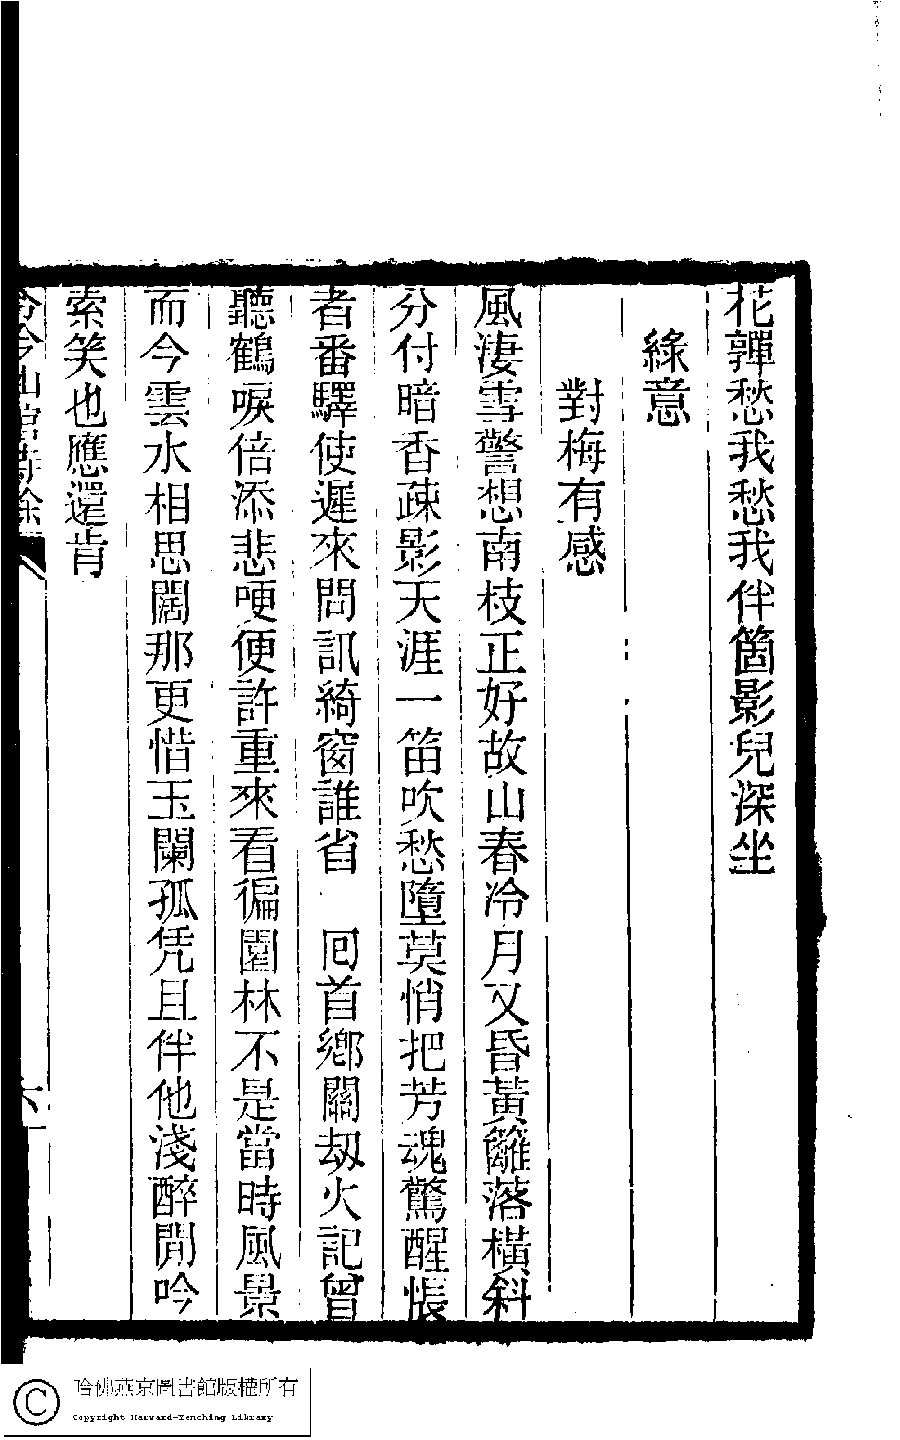 花嚲愁我愁我伴箇影兒深坐
綠意
對梅有感
風淒雪警想南枝正好故山春冷月又昏黃籬落橫斜
分付暗香疎影天涯一笛吹愁墮莫悄把芳魂驚醒悵
者番驛使遲來問訊綺窗誰省　囘首鄉關刼火記曾
聽鶴唳倍添悲哽便許重來看徧園林不是當時風景
而今雲水相思闊那更惜玉闌孤凭且伴他淺醉閒吟
索笑也應還肯
六
哈佛燕京圖書館版權所有
Copyright Harvard-Yenching Library